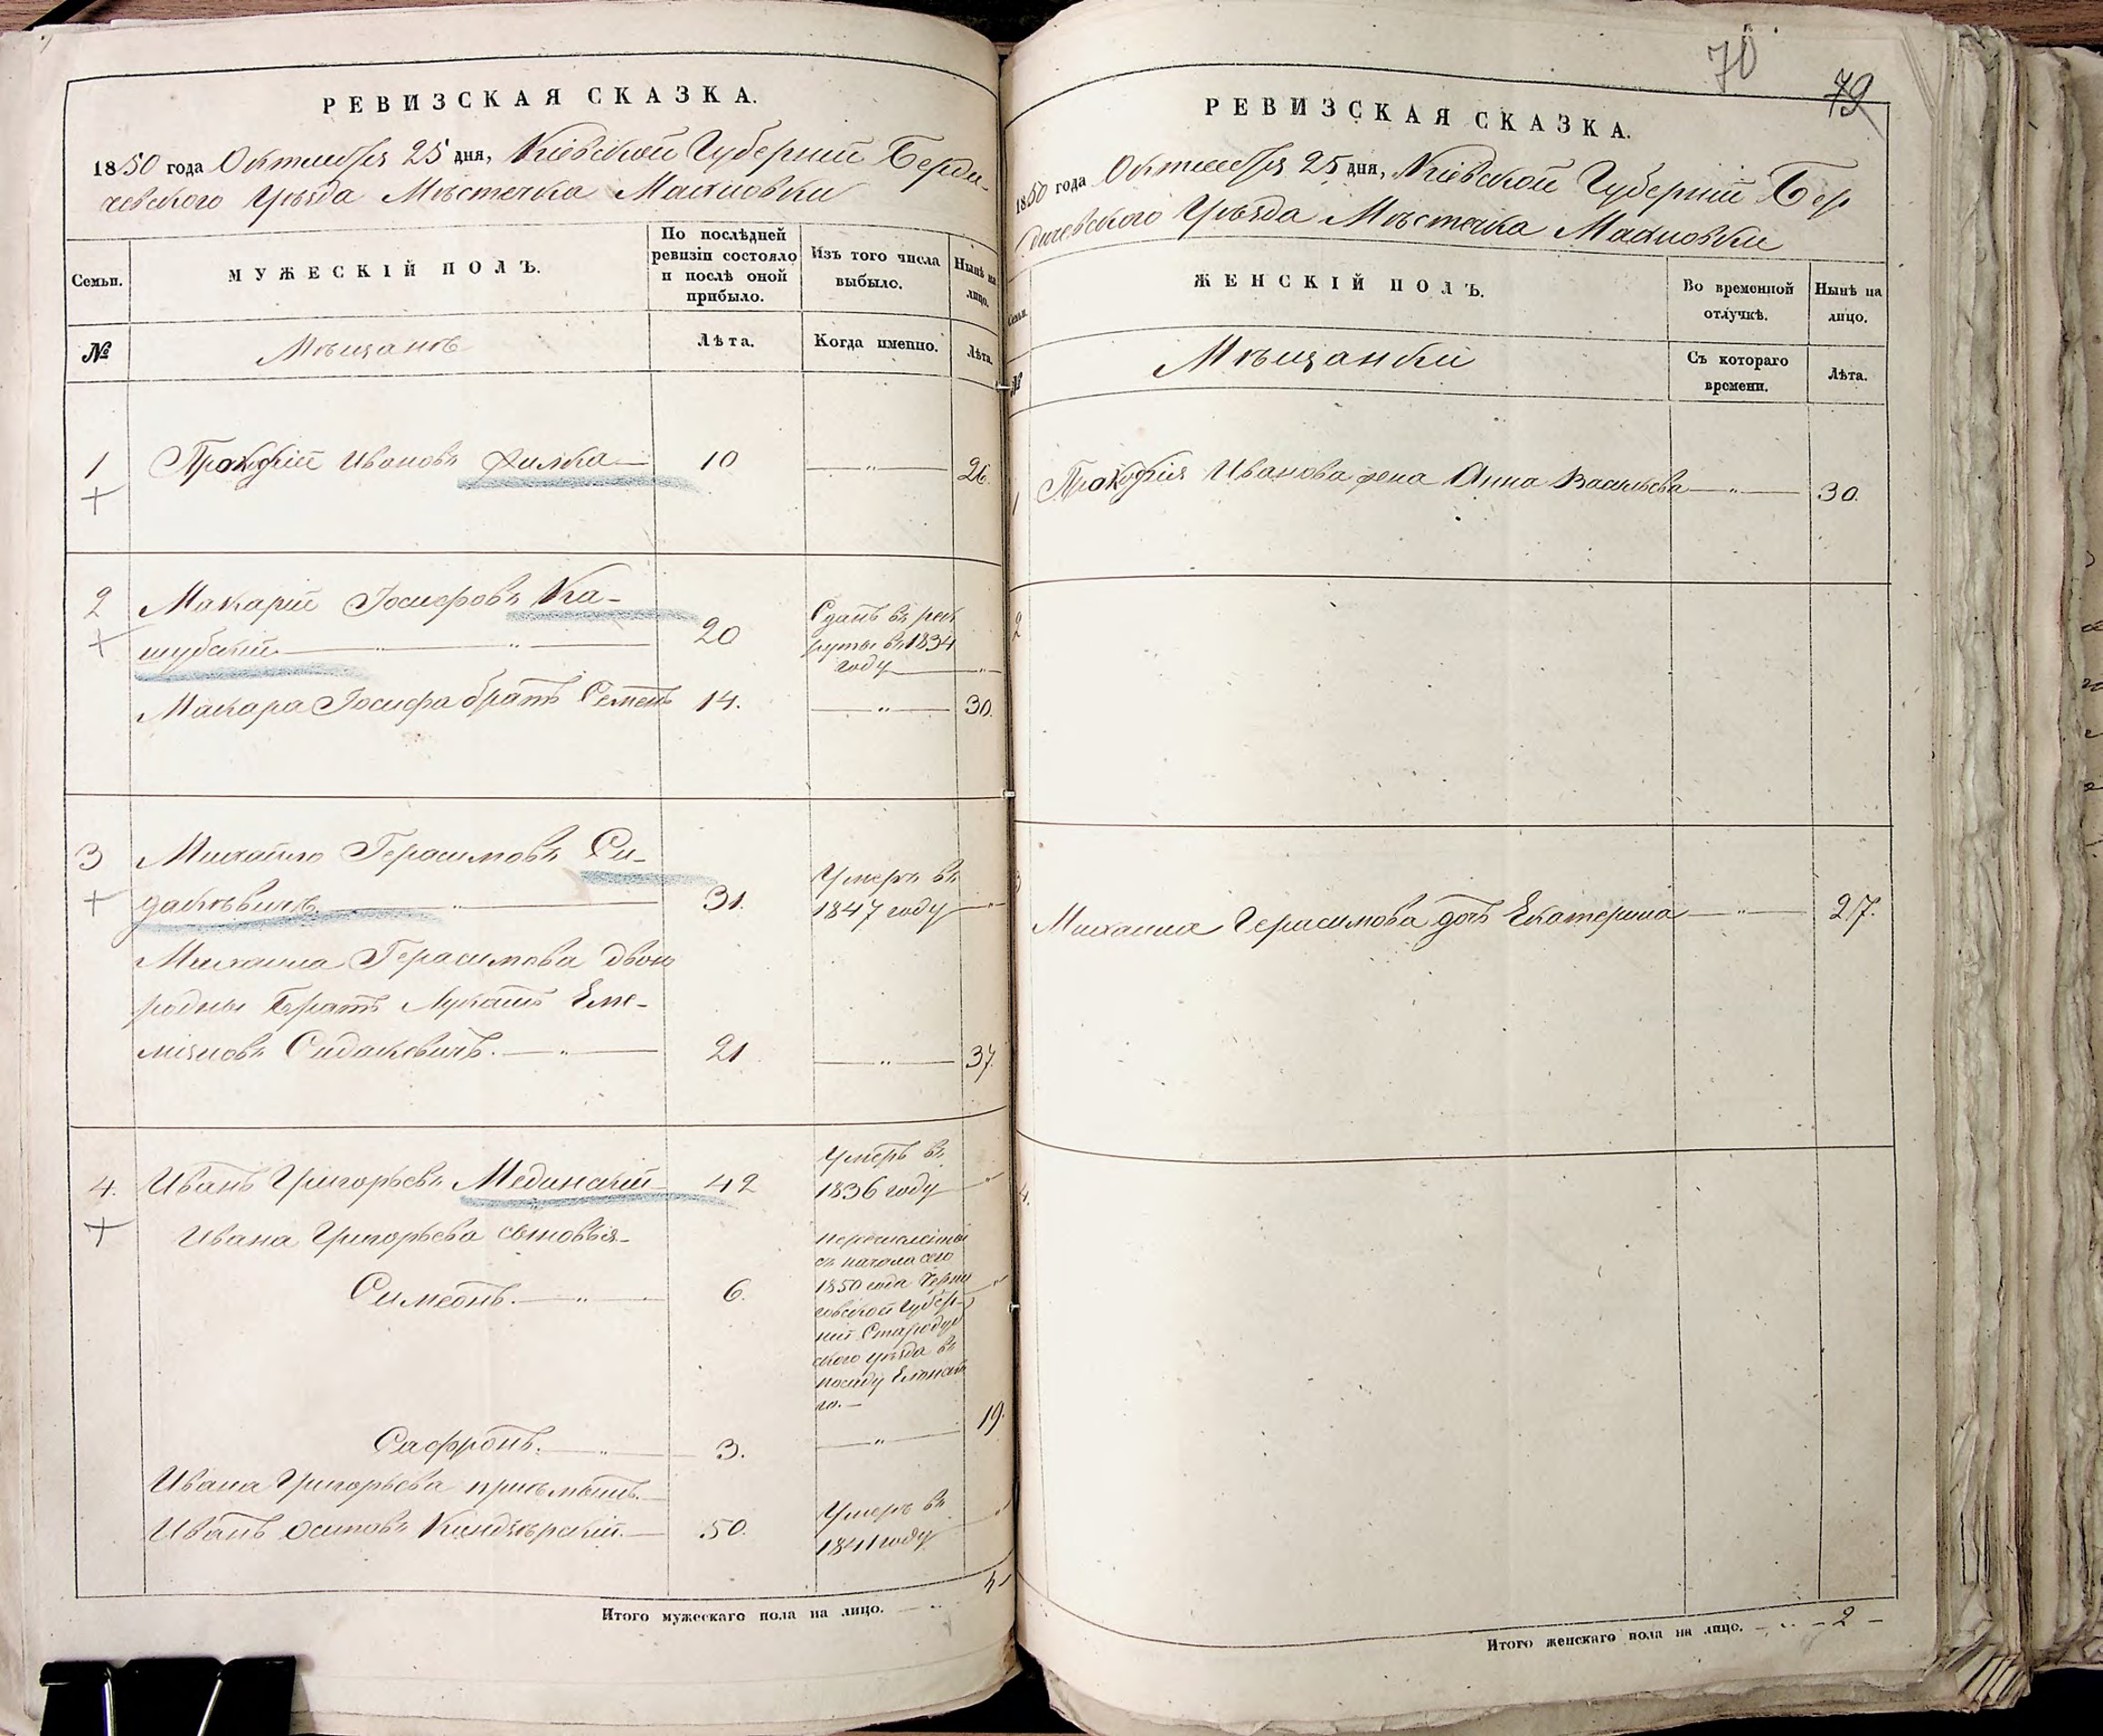 РЕВИЗСКАЯ СКАЗКА.
1850 года Октября 25 дня, Кіевской Губерніи Берди-
чевского Уѣзда Мѣстечка Махновки
Семьи.
МУЖЕСКІЙ ПОЛЪ.
По послѣдней
ревизіи состояло
и послѣ оной
прибыло.
Изъ того числа
выбыло.
Нынѣ на
лицо.
№
Мѣщанъ
Лѣта.
Когда именно.
Лѣта.
1 Прокофій Ивановъ 10 — „ — 26.
2 Макарій Іосифовъ Ка-
шубскій — „ — 20
Сданъ въ рек
руты въ 1834
году — „
Макара Іосифа братъ Семенъ 14. — „ — 30.
3 Михайло Герасимовъ Си-
даковичъ. — „ — 31.
Умеръ въ
1847 году — „
Михаила Герасимова двою
родны братъ Лукашъ Еме-
ліяновъ Сидаковичъ. — „ — 21 — „ — 37.
4. Иванъ Григорьевъ Мединскій 42
Умеръ въ
1836 году — „
Ивана Григорьева сыновья
Симеонъ. — „ — 6.
съ начала сего
1850 года Черни
говской Губер-
ніи Стародуб
ского уѣзда въ
посаду
го. —
Сафронъ. — „ — 3. — „ — 19.
Ивана Григорьева пріемышъ
Иванъ Осиповъ — 50.
Умеръ въ
1841 году
4
Итого мужескаго пола на лицо. — „
70
79
РЕВИЗСКАЯ СКАЗКА.
1850 года Октября 25 дня, Кіевской Губерніи Бер
дичевского Уѣзда Мѣстечка Махновки
Семьи.
ЖЕНСКІЙ ПОЛЪ.
Во временной
отлучкѣ.
Нынѣ на
лицо.
№
Мѣщанки
Съ котораго
времени.
Лѣта.
1 Прокофія Иванова жена Анна Васильева — „ — 30.
2
3 Михаила Герасимова дочь Екатерина — „ — 27.
4.
Итого женскаго пола на лицо. — „ — 2 —